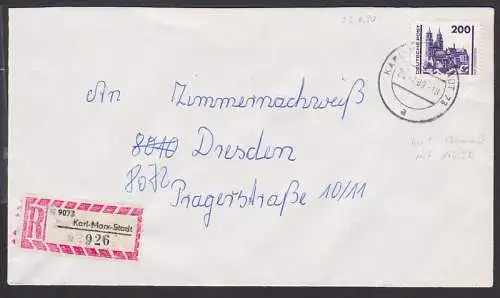 23.6.90
200
DEUTSCHE POST
An Zimmernachweiß
8010 Dresden
8072
Pragerstraße 10/11
R
9073
Karl-Marx-Stadt
926